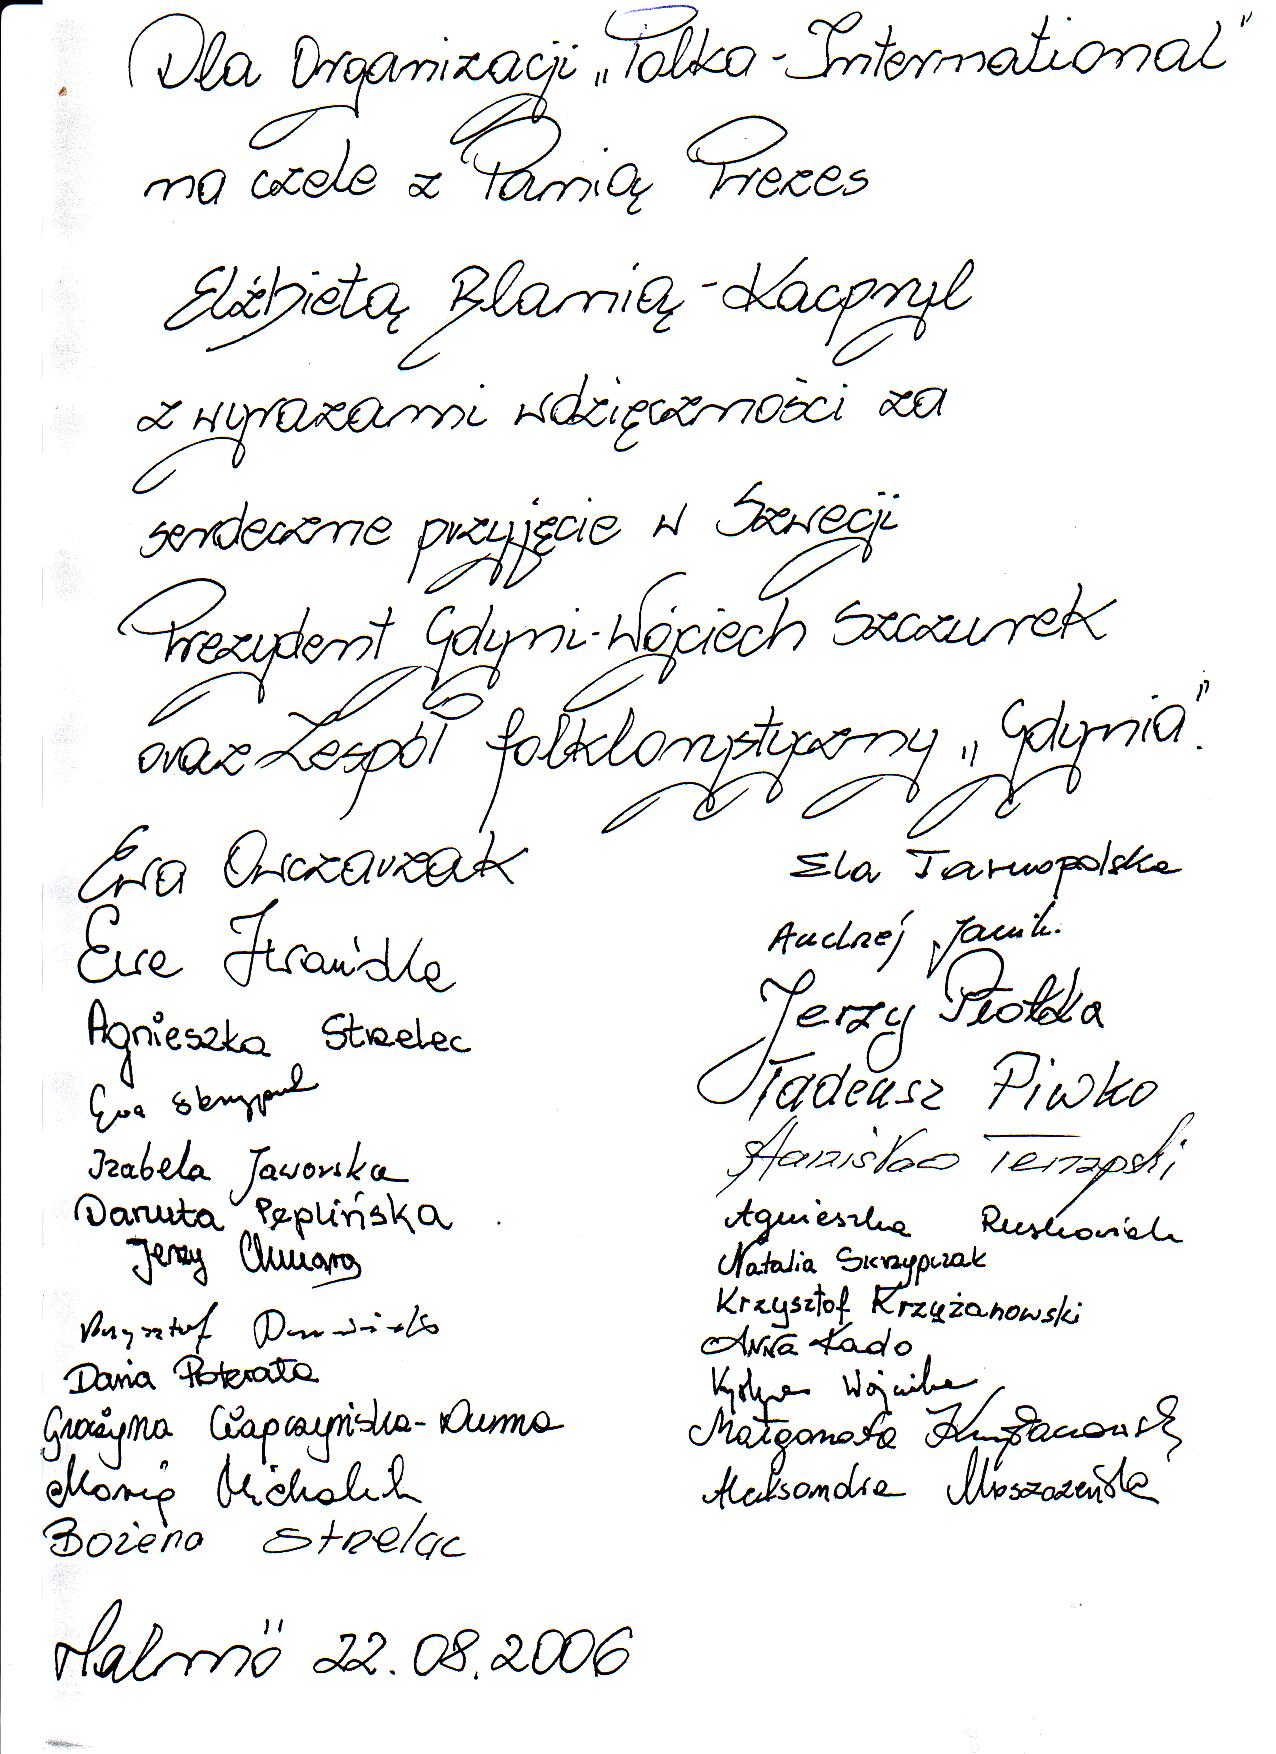 Dla Organizacji „Polka-International”
na czele z Panią Prezes
Elżbietą Blanią-Kacpryl
z wyrazami wdzięczności za
serdeczne przyjęcie w Szwecji
Prezydent Gdyni-Wojciech Szczurek
oraz Zespół folklorystyczny „Gdynia”.
Ewa Owczarzak
Ewa
Agnieszka Strzelec
Ewa
Izabela Jaworska
Danuta Peplińska
Jerzy Chmara
Krzysztof
Daria Poterała
Grażyna Czapczyńska-Duma
Maria Michalik
Bożena Strzelec
Ela Tarnopolska
Andrzej Janik
Jerzy Płotka
Tadeusz Piwko
Stanisław
Agnieszka
Natalia Skrzypczak
Krzysztof Krzyżanowski
Anna Kado
Małgorzata Krzyżanowska
Aleksandra
Malmö 22.08.2006